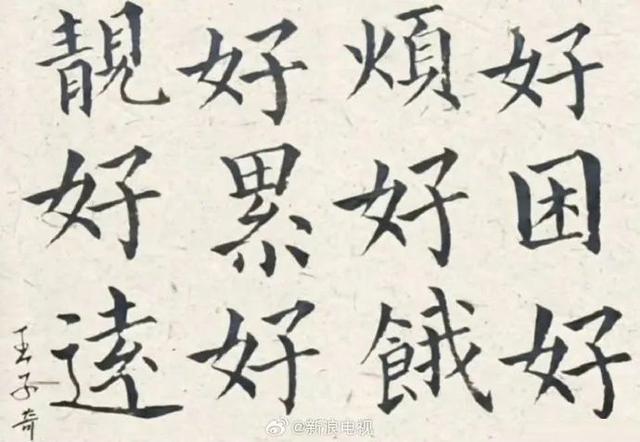 好困好
煩好餓
好累好
靚好遠
王子奇
@新浪电视